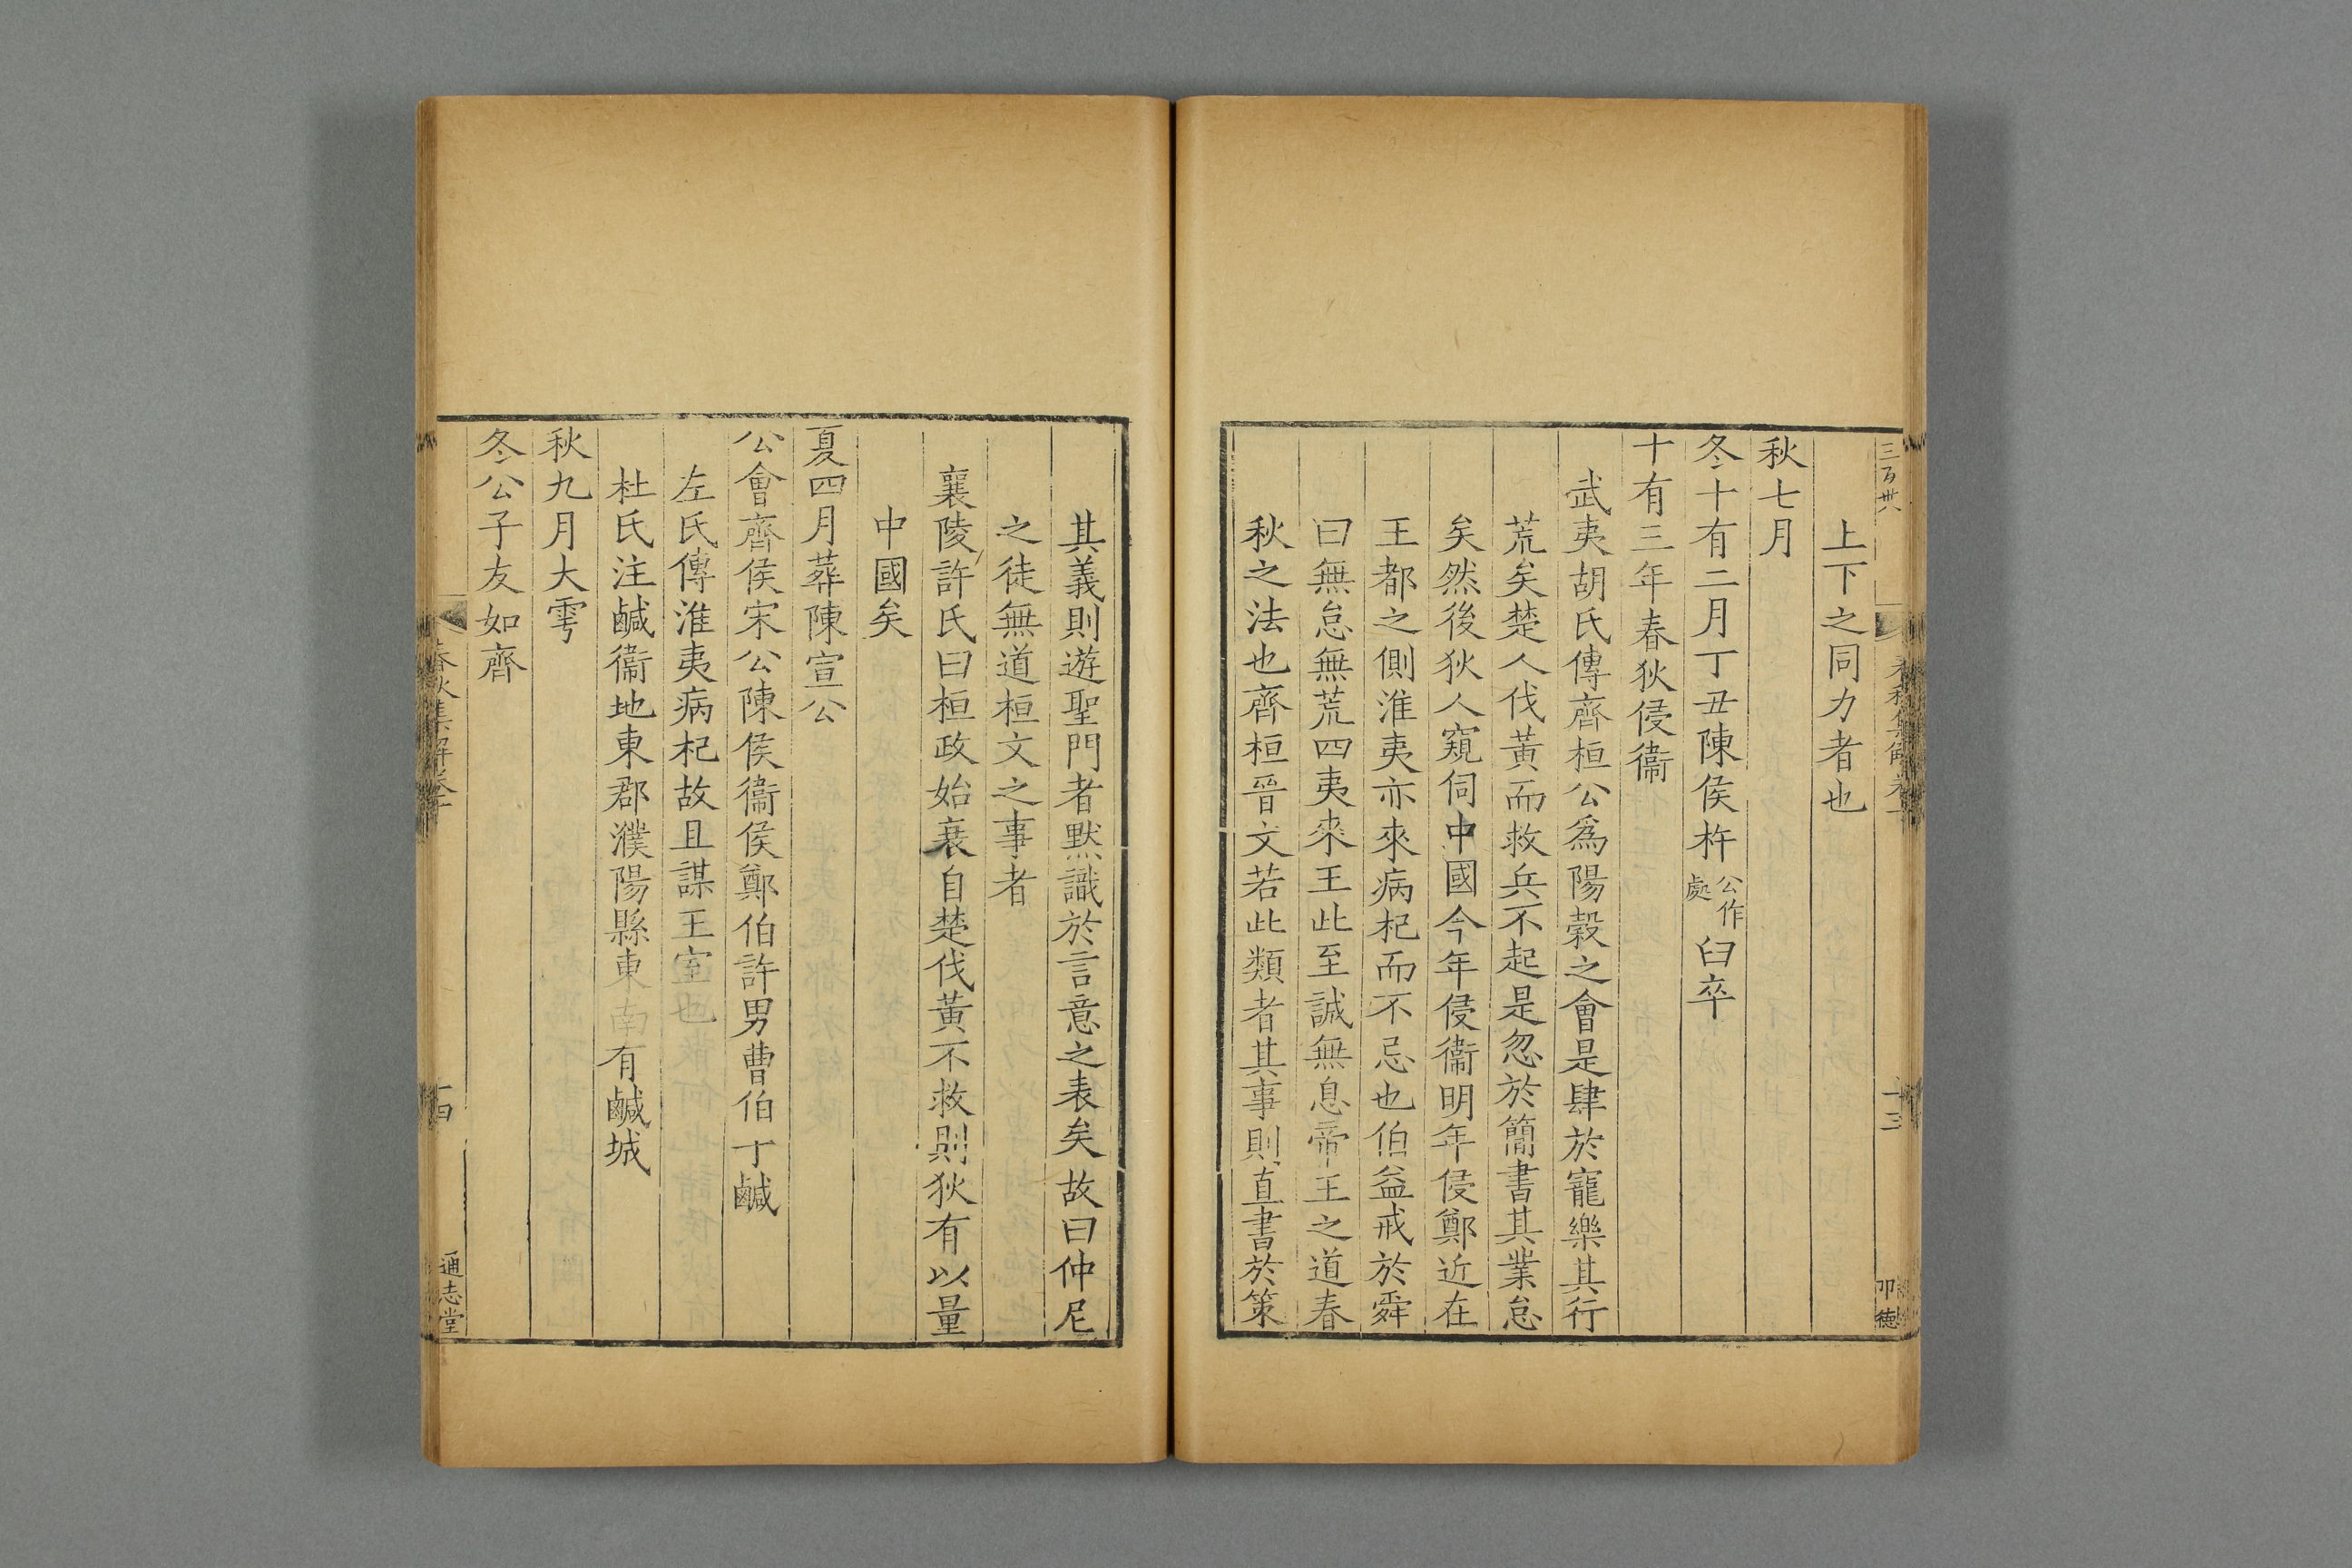 三百卅
上下之同力者也
秋七月
冬十有二月丁丑陳侯杵公作處臼卒
十有三年春狄侵衞
武夷胡氏傳齊桓公爲陽榖之會是肆於寵樂其行
荒矣楚人伐黃而救兵不起是忽於簡書其業怠
矣然後狄人窺伺中國今年侵衞明年侵鄭近在
王都之側淮夷亦來病杞而不忌也伯益戒於舜
曰無怠無荒四夷來王此至誠無息帝王之道春
秋之法也齊桓晉文若此類者其事則直書於策
十三
卬德
其義則遊聖門者默識於言意之表矣故曰仲尼
之徒無道桓文之事者
襄陵許氏曰桓政始衰自楚伐黃不救則狄有以量
中國矣
夏四月葬陳宣公
公會齊侯宋公陳侯衞侯鄭伯許男曹伯于鹹
左氏傳淮夷病杞故且謀王室也
杜氏注鹹衞地東郡濮陽縣東南有鹹城
秋九月大雩
冬公子友如齊
春秋集解卷十
通志堂